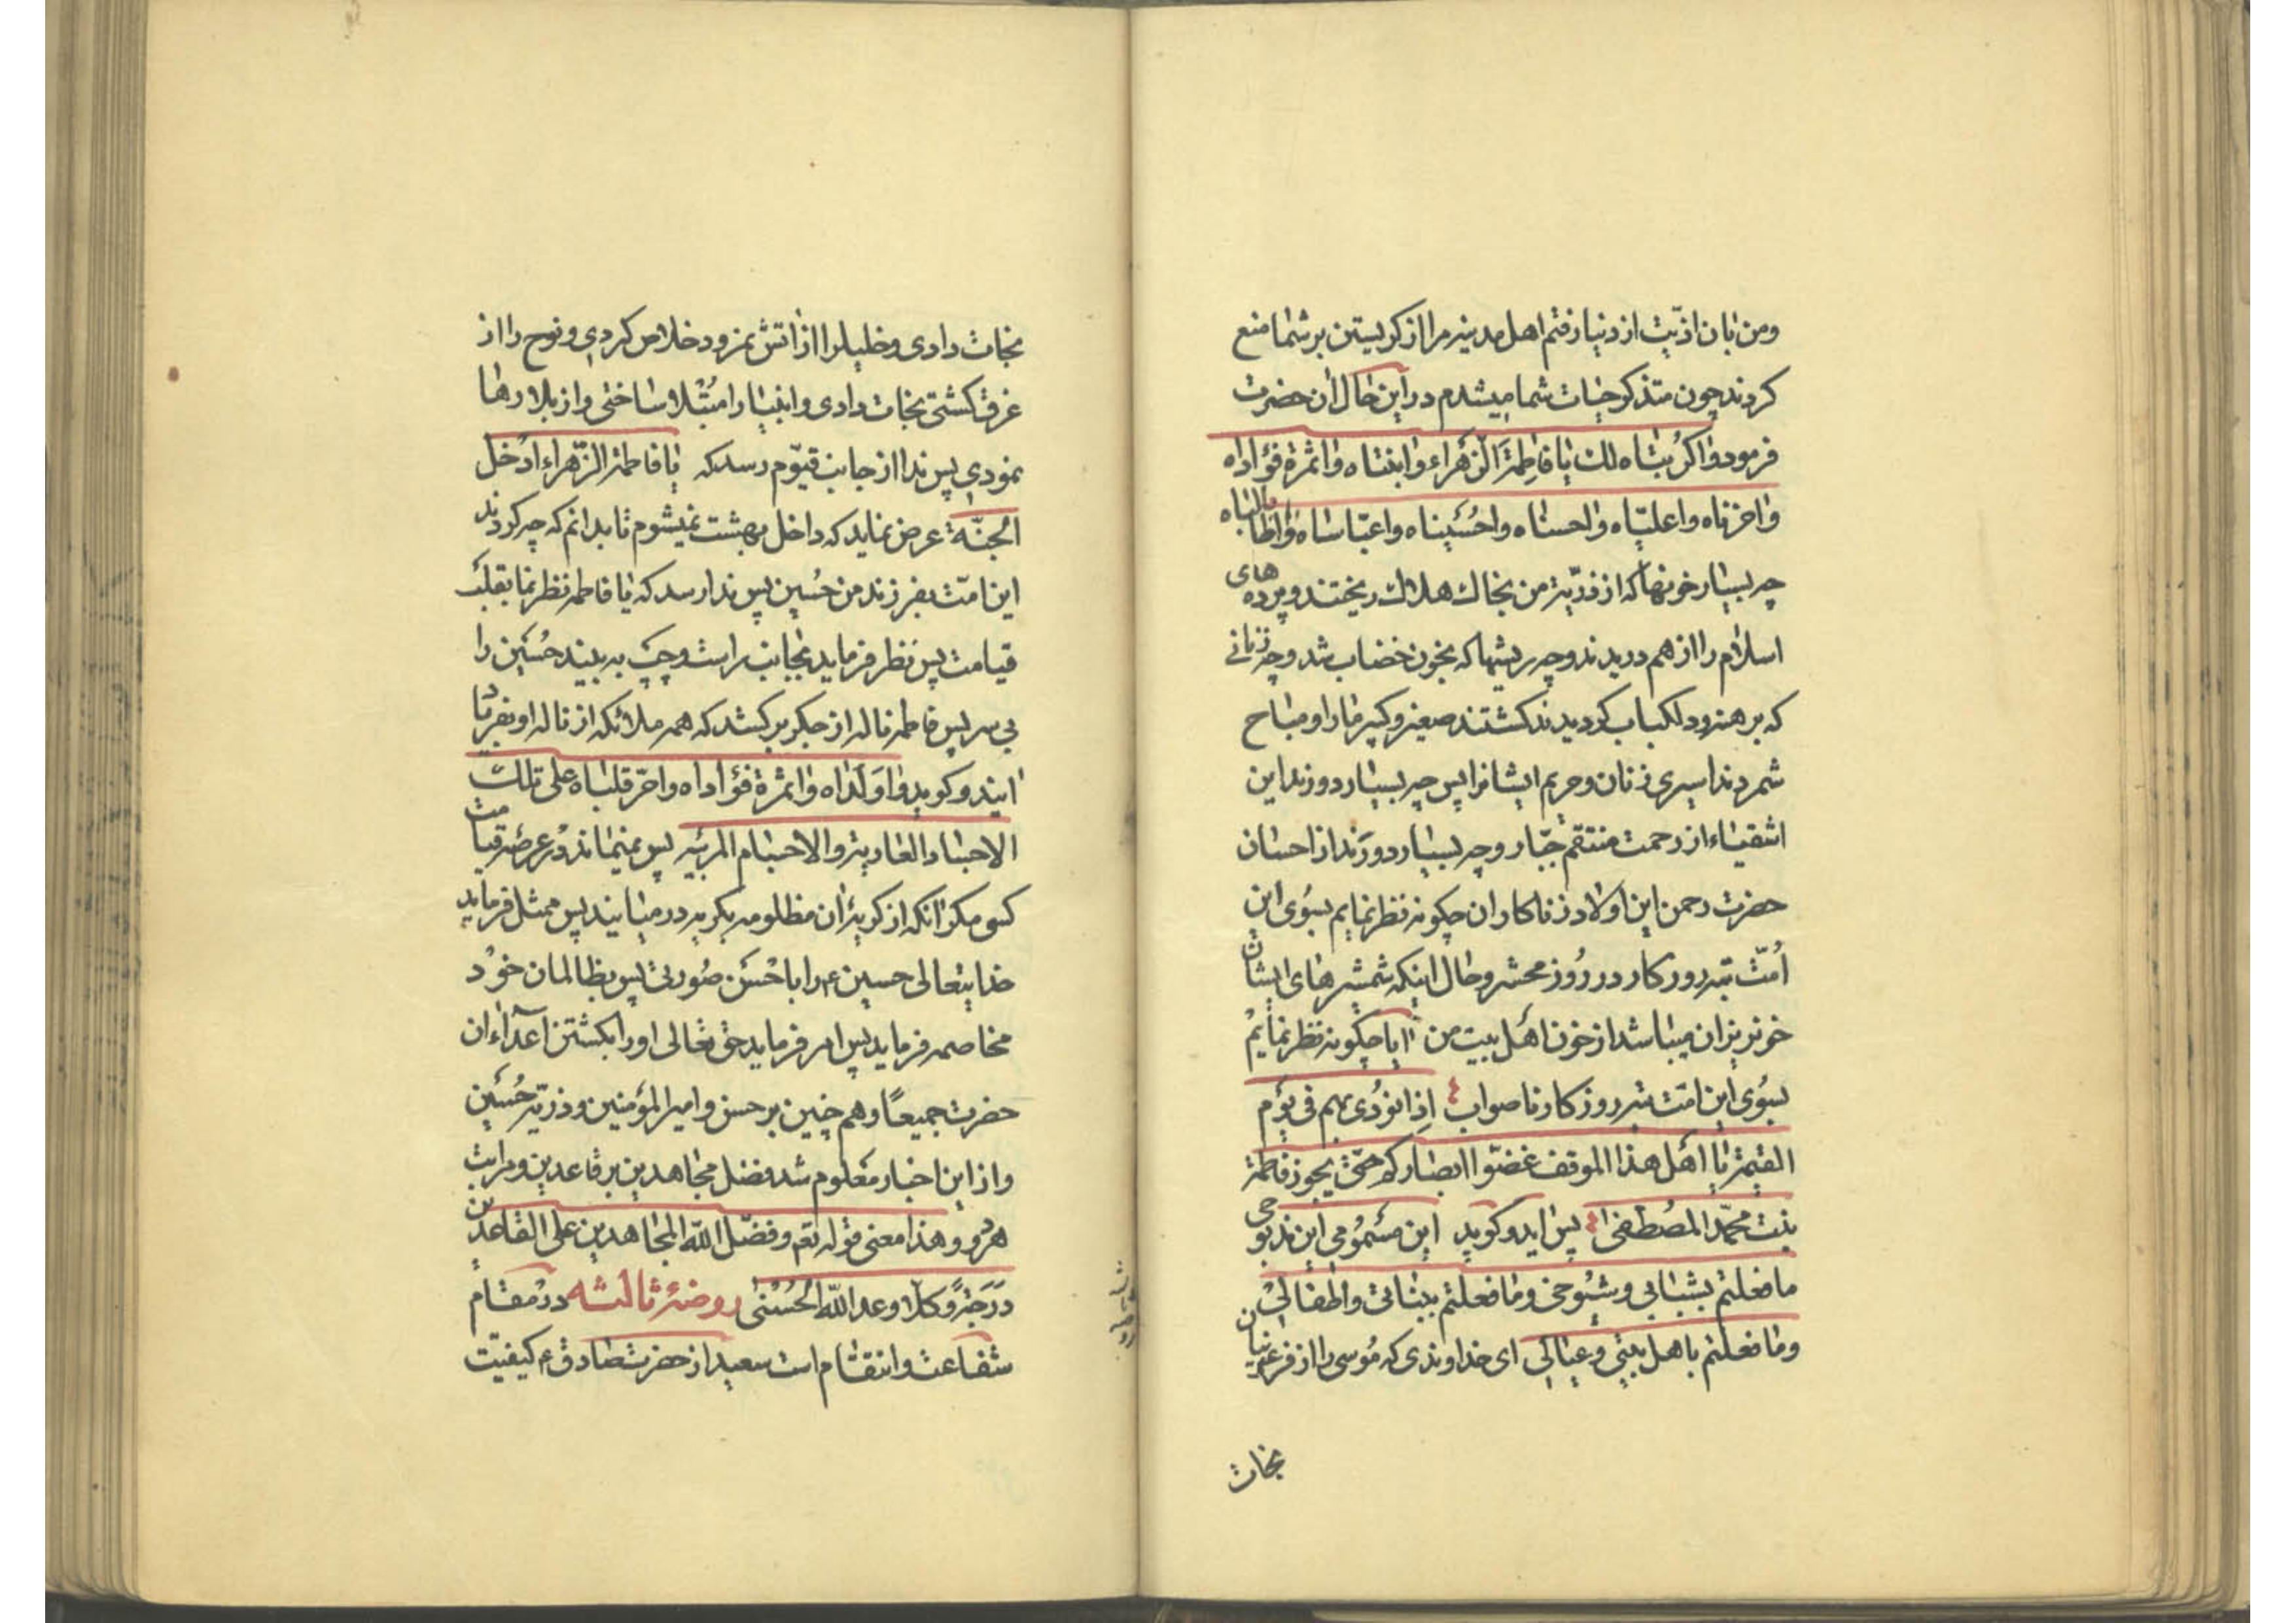 ومن بان اذیّت از دنیا رفتم اهل مدینه مرا از کریستن بر شما منع
کردند چون متذکر حیات شما میشدم در این حال ان حضرت
فرمود واکربتاه لك یا فاطمة الزهراء وابنتاه واثمرة فؤاداه
واحزناه واعلیّاه واحسناه واحُسَیناه واعبّاساه واطالباه
چه بسیار خونها که از ذرّیّه من بخاك هلاك ریختند و پرده های
اسلام را از هم دریدند و چه ریشها که بخون خضاب شد و چه زنانی
که برهنه و دلکباب کردیدند کشتند صغیر و کبیر ما را و مباح
شمردند اسیری زنان و حریم ایشانرا پس چه بسیار دورند این
اشقیاء از رحمت منتقم جبّار و چه بسیار دورَند از احسان
حضرت رحمن این اولاد زناکاران چکونه نظر نمایم بسُوی این
اُمّت تبه روزکار در رُوز محشر و حال اینکه شمشیرهای ایشان
خونریزان میباشد از خون اهل بیت من ایا چکونه نظر نمایم
بسُوی این امّت تبه روزکار ناصواب اِذا نوُدی بهم فی یوم
القیمة یا اهَل هذا الموقف غضّوا ابصارکم حتّی یجوز فاطمة
بنت محمّد المصُطفی پس اید و کوید این مسَمُومی این مذبوحی
ما فعلتم بشبابی وشیُوخی وما فعلتم ببناتی واطفالی
وما فعلتم باهل بیتی وعیالی ای خداوندی که مُوسی را از فرعونیان
نجات
نجات دادی و خلیلرا از اتش نمرود خلاص کردی و نوح را از
غرق کشتی نجات دادی و انبیا را مبتلا ساختی و از بلا رها
نمودی پس ندا از جانب قیّوم رسد که یا فاطمة الزّهراء ادُخل
الجنّة عرض نماید که داخل بهشت نمیشوم تا بدانم که چه کردند
این امّت بفرزند من حُسین پس ندا رسد که یا فاطمه نظر نما بقلب
قیامت پس نظر فرماید بجانب راست و چپ به بیند حسَین را
بی سر پس فاطمه ناله از جکر برکشد که همه ملائکه از ناله او بفریاد
ایند و کوید واولداه واثمرة فؤاداه واحرّ قلباه علی تلك
الاجساد العاریة والاجسام المرئیه پس نمیماند در عرصه قیامت
کسی مکر انکه از کریه ان مظلومه بکریه در میایند پس ممثل فرماید
خدایتعالی حسین ع را باحسَن صُورتی پس بظالمان خود
مخاصمه فرماید پس امر فرماید حق تعالی او را بکشتن اعداء ان
حضرت جمیعًا و هم چنین بر حسن و امیر المؤمنین و ذریّه حُسَین
و از این اخبار معَلوم شد فضل مجاهدین بر قاعدین و مراتب
هر دو وهذا معنی قوله تع وفضّل اللّه المجاهدین علی القاعدین
درَجةً وکلا وعد اللّه الحُسْنی روضهٔ ثالثه در مقام
شفاعت و انتقام است سعید از حضرت صادق ع کیفیّت